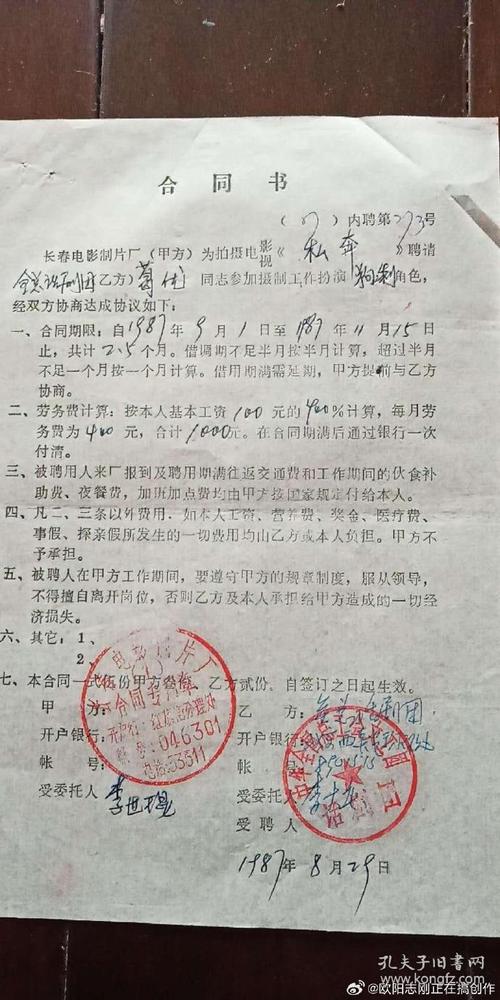 合同书
(87)内聘第273号
长春电影制片厂(甲方)为拍摄电影视《私奔》聘请
全总话剧团(乙方)葛优 同志参加摄制工作扮演 角色,
经双方协商达成协议如下:
一、合同期限:自1987年9月1日至1987年11月15日
止,共计2.5个月。借调期不足半月按半月计算,超过半月
不足一个月按一个月计算。借用期满需延期,甲方提前与乙方
协商。
二、劳务费计算:按本人基本工资100元的400%计算,每月劳
务费为400元,合计1000元。在合同期满后通过银行一次
付清。
三、被聘用人来厂报到及聘用期满往返交通费和工作期间的伙食补
助费、夜餐费,加班加点费均由甲方按国家规定付给本人。
四、凡二、三条以外费用,如本人工资、营养费、奖金、医疗费、
事假、探亲假所发生的一切费用均由乙方或本人负担。甲方不
予承担。
五、被聘人在甲方工作期间,要遵守甲方的规章制度,服从领导,
不得擅自离开岗位,否则乙方及本人承担给甲方造成的一切经
济损失。
六、其它:1、
2、
七、本合同一式伍份甲方叁份,乙方贰份,自签订之日起生效。
甲方: 乙方:全总话剧团
开户银行: 开户银行:
帐号: 帐号:
受委托人 受委托人
受聘人
1987年8月29日
电影制片厂
合同专用章
开户行:红旗街办理处
帐号:046301
电话:53511
话剧团
孔夫子旧书网
@欧阳志刚正在搞创作